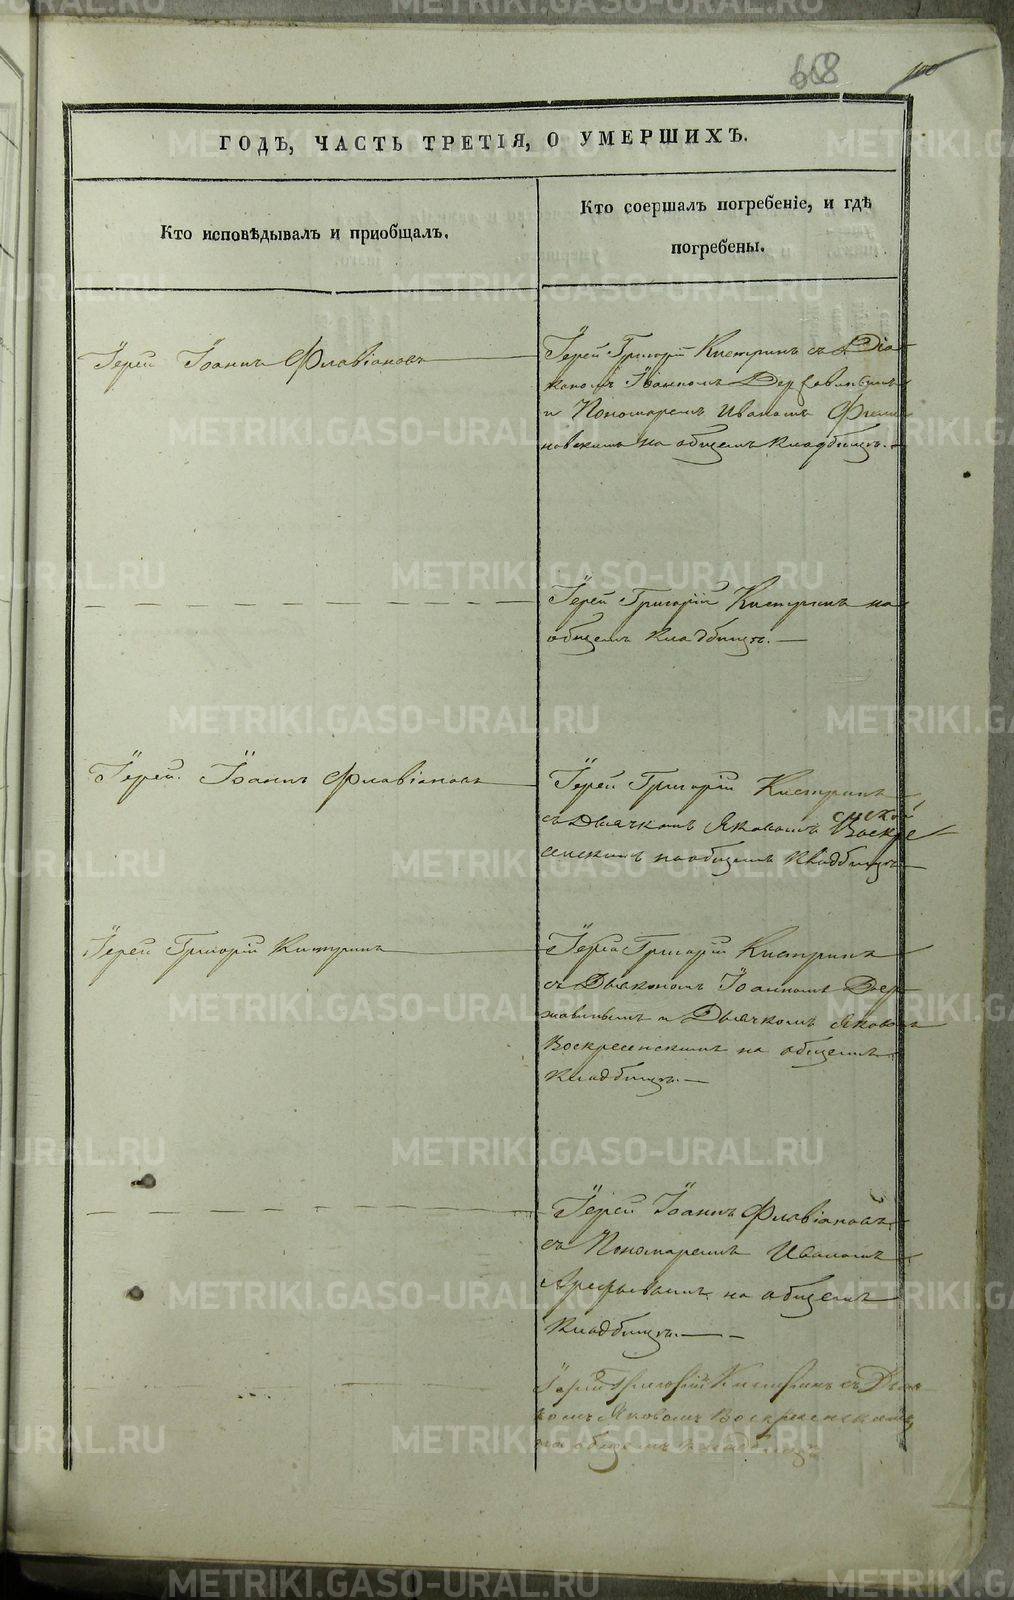 668
100
ГОДЪ, ЧАСТЬ ТРЕТІЯ, О УМЕРШИХЪ.
Кто исповѣдывалъ и приобщалъ.
Кто соершалъ погребеніе, и гдѣ
погребены.
Іерей Іоаннъ Флавіановъ
Іерей Григорій Кистринъ съ Діа
кономъ Іоанномъ Державинымъ
и Пономаремъ Иваномъ
на общемъ кладбищѣ.
Іерей Григорій Кистринъ на
общемъ кладбищѣ.
Іерей Іоаннъ Флавіановъ
Іерей Григорій Кистринъ
съ Дьячкомъ Яковомъ Воскре
сенскимъ на общемъ кладбищѣ
Іерей Григорій Кистринъ
Іерей Григорій Кистринъ
съ Дьякономъ Іоанномъ Дер
жавинымъ и Дьячкомъ Яковомъ
Воскресенскимъ на общемъ
кладбищѣ.
Іерей Іоаннъ Флавіановъ
съ Пономаремъ Иваномъ
Арефьевымъ на общемъ
кладбищѣ.
Іерей Григорій Кистринъ съ Дьяч
комъ Яковомъ Воскресенскимъ
на общемъ кладбищѣ
METRIKI.GASO-URAL.RU